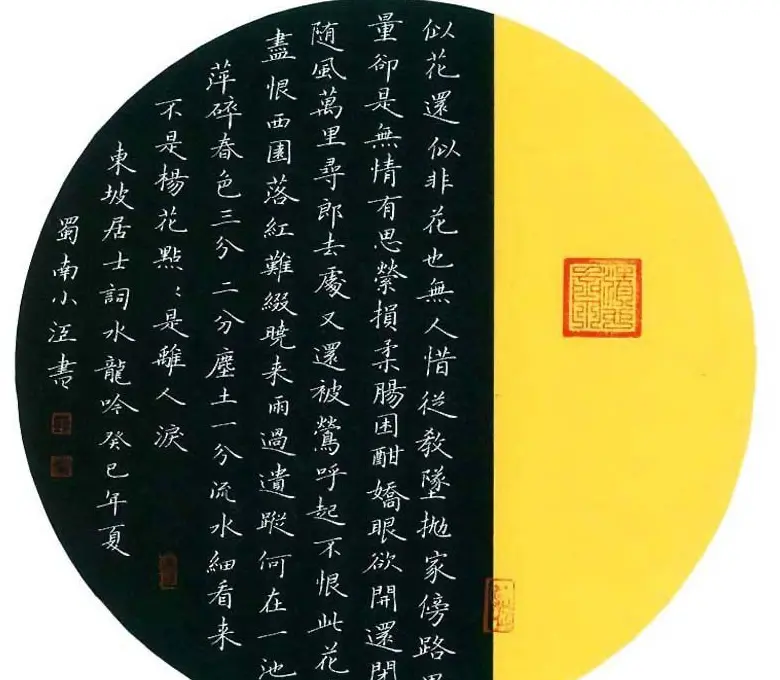 似花還似非花也無人惜從教墜拋家傍路
量卻是無情有思縈損柔腸困酣嬌眼欲開還閉
随風萬里尋郎去處又還被鶯呼起不恨此花
盡恨西園落紅難綴曉来雨過遺蹤何在一池
萍碎春色三分二分塵土一分流水細看来
不是楊花點〻是離人淚
東坡居士詞水龍吟癸巳年夏
蜀南小汪書